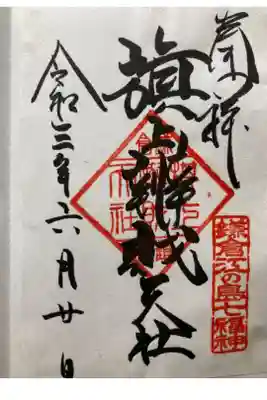 奉拝
鎌倉江の島七福神
旗上辨財天社
令和三年六月廿日